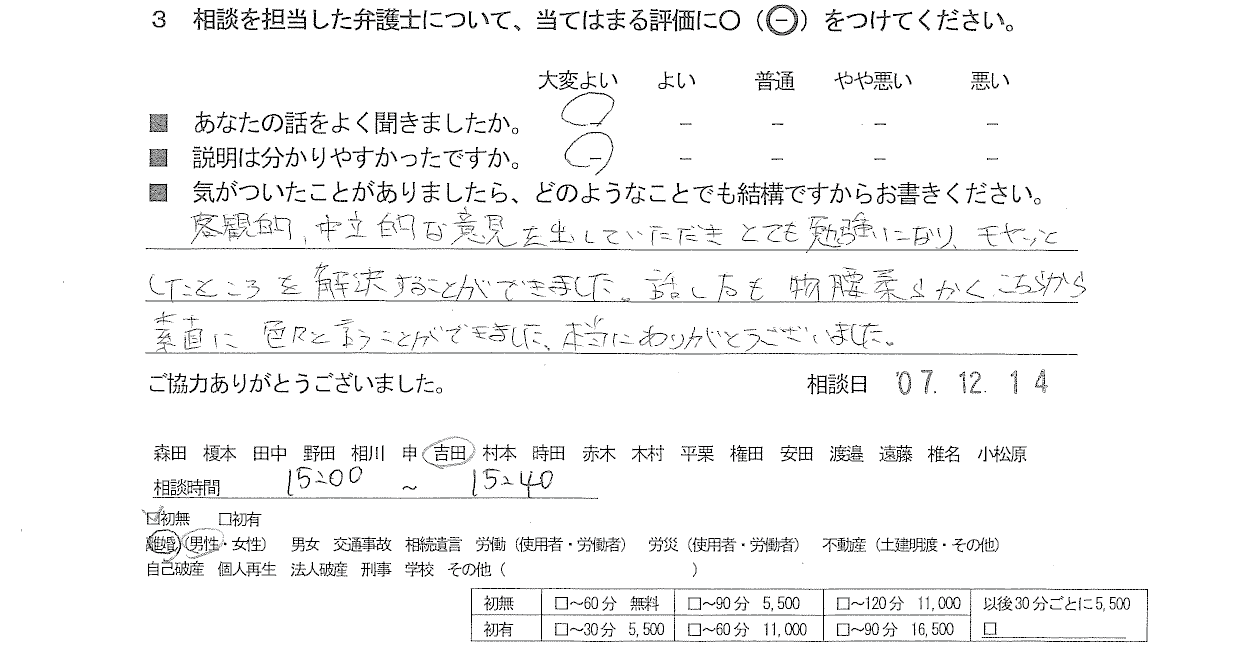 3 相談を担当した弁護士について、当てはまる評価に○(㊀)をつけてください。
大変よい よい 普通 やや悪い 悪い
■ あなたの話をよく聞きましたか。 − − − − −
■ 説明は分かりやすかったですか。 − − − − −
■ 気がついたことがありましたら、どのようなことでも結構ですからお書きください。
客観的、中立的な意見を出していただきとても勉強になり、モヤッと
したところを解決することができました。話し方も物腰柔らかく、こちらから
素直に色々と言うことができました、本当にありがとうございました。
ご協力ありがとうございました。 相談日 '07.12.14
森田 榎本 田中 野田 相川 申 吉田 村本 時田 赤木 木村 平栗 権田 安田 渡邉 遠藤 椎名 小松原
相談時間 15:00 ~ 15:40
☑初無 □初有
離婚(男性・女性) 男女 交通事故 相続遺言 労働(使用者・労働者) 労災(使用者・労働者) 不動産(土建明渡・その他)
自己破産 個人再生 法人破産 刑事 学校 その他( )
初無 □~60分 無料 □~90分 5,500 □~120分 11,000 以後30分ごとに5,500
初有 □~30分 5,500 □~60分 11,000 □~90分 16,500 □